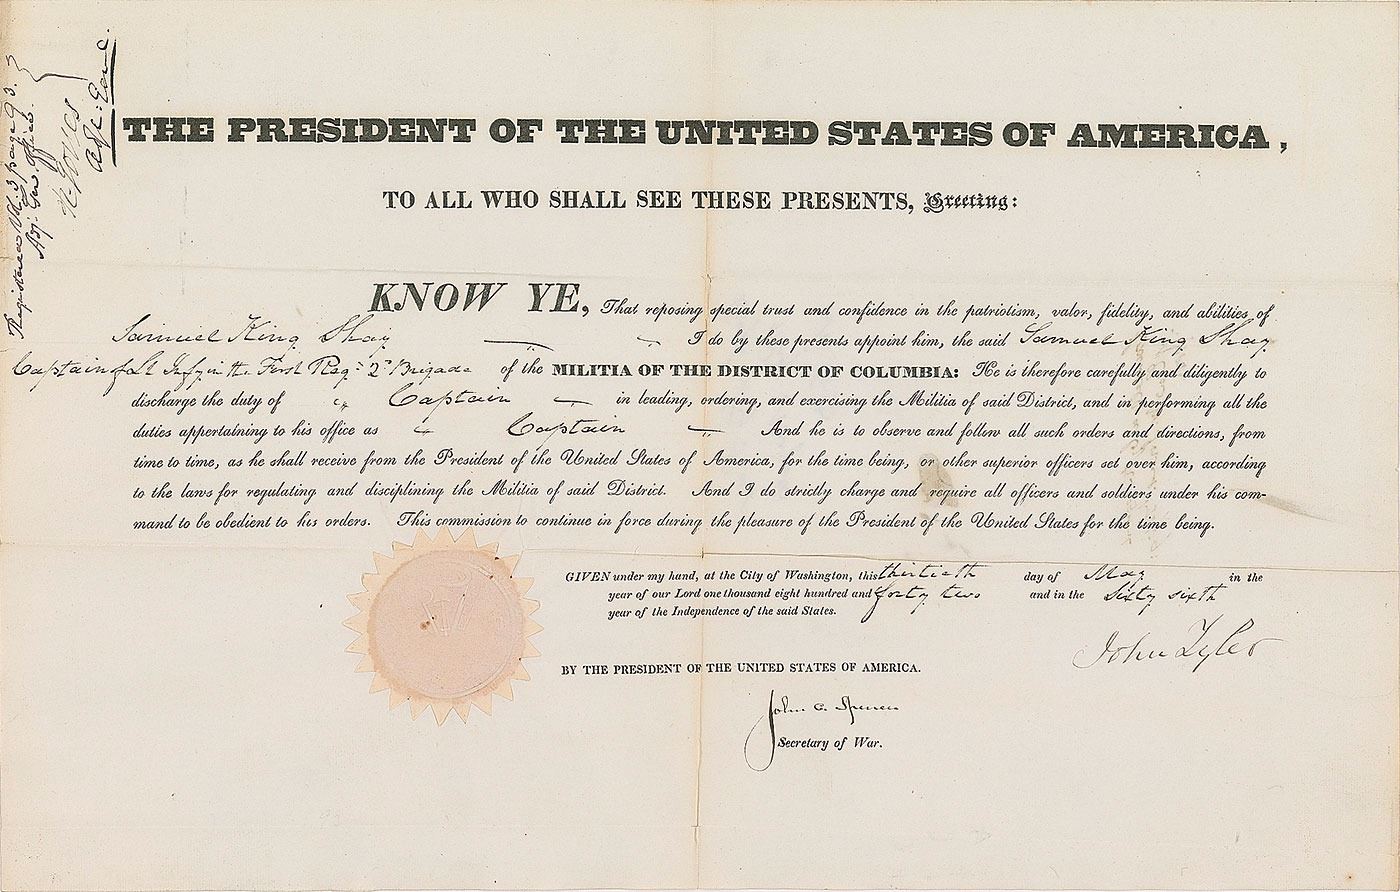 Registered Vol. 3 page 93.
Adj: Gen. Office.
R. Jones
Adj: Gen
THE PRESIDENT OF THE UNITED STATES OF AMERICA,
TO ALL WHO SHALL SEE THESE PRESENTS, Greeting:
KNOW YE, That reposing special trust and confidence in the patriotism, valor, fidelity, and abilities of
Samuel King Shay I do by these presents appoint him, the said Samuel King Shay
Captain of Lt Infy in the First Reg: 2d Brigade of the MILITIA OF THE DISTRICT OF COLUMBIA: He is therefore carefully and diligently to
discharge the duty of Captain in leading, ordering, and exercising the Militia of said District, and in performing all the
duties appertaining to his office as Captain And he is to observe and follow all such orders and directions, from
time to time, as he shall receive from the President of the United States of America, for the time being, or other superior officers set over him, according
to the laws for regulating and disciplining the Militia of said District. And I do strictly charge and require all officers and soldiers under his com-
mand to be obedient to his orders. This commission to continue in force during the pleasure of the President of the United States for the time being.
GIVEN under my hand, at the City of Washington, this thirtieth day of May in the
year of our Lord one thousand eight hundred and forty two and in the sixty sixth
year of the Independence of the said States.
John Tyler
BY THE PRESIDENT OF THE UNITED STATES OF AMERICA.
John C. Spencer
Secretary of War.